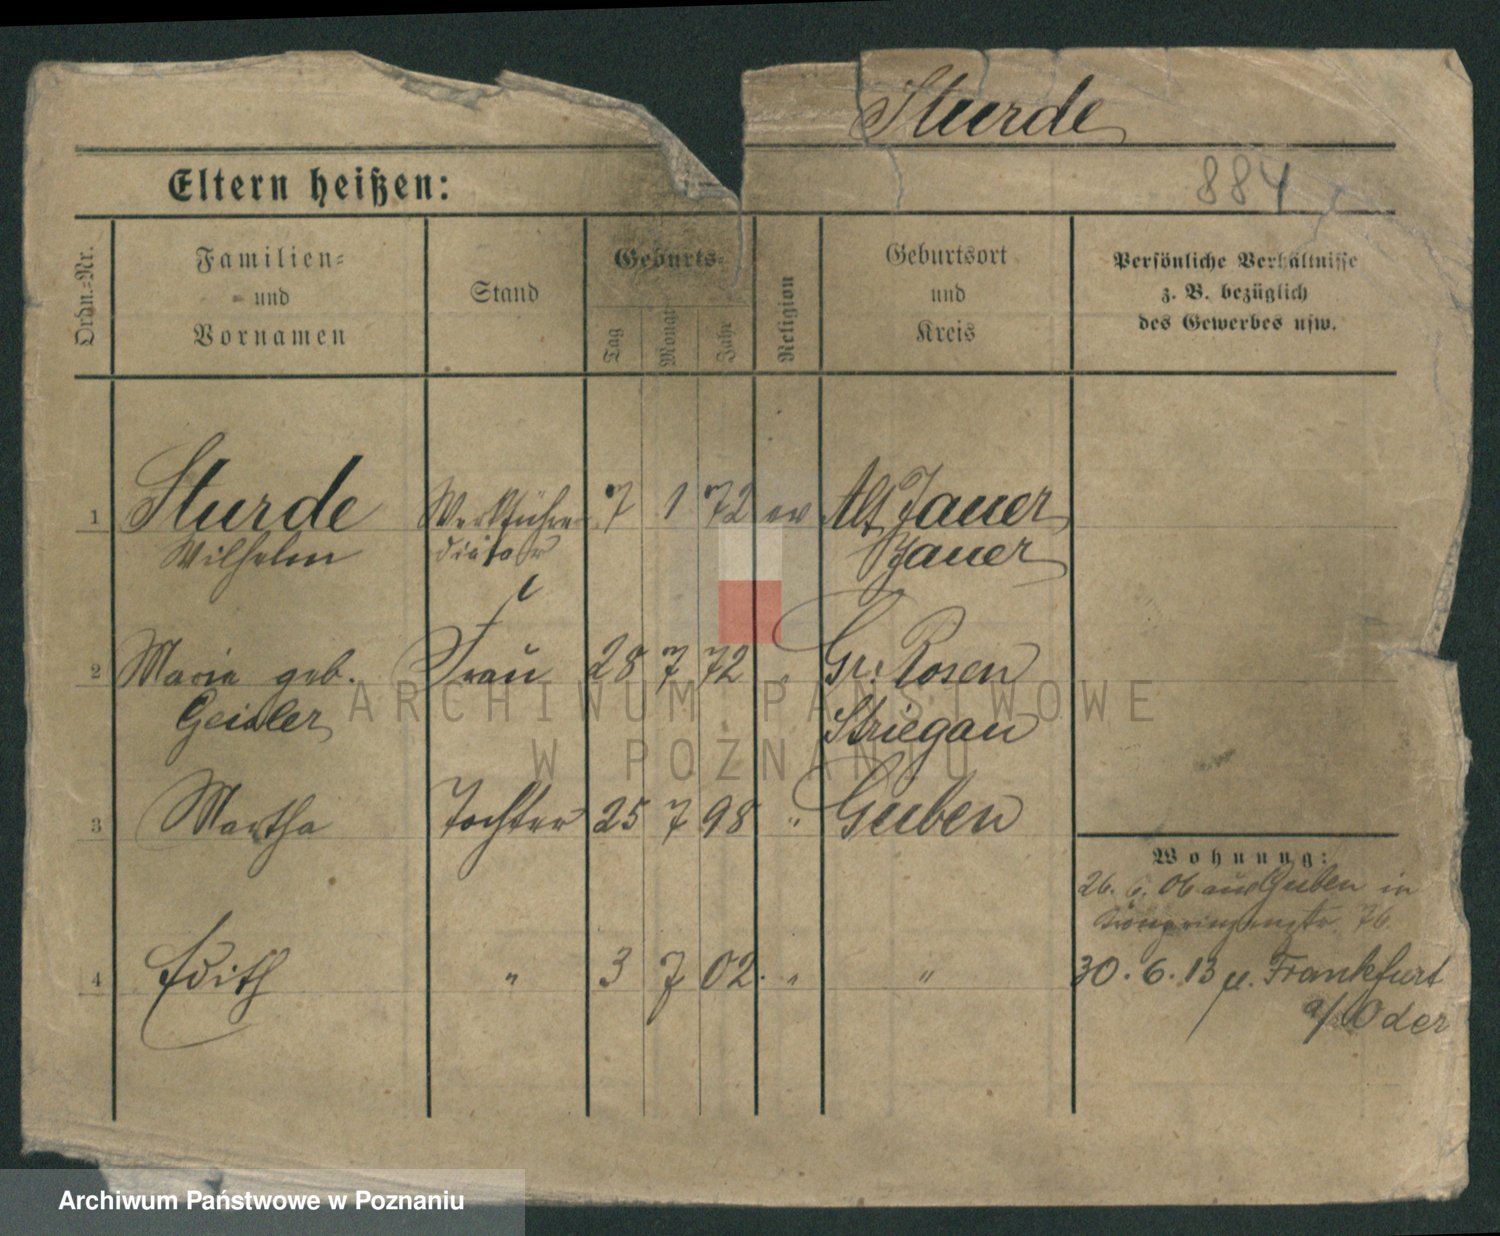 Sturde
Eltern heißen:
884
Ordn.-Nr.
Familien-
und
Vornamen
Stand
Geburts-
Tag
Monat
Jahr
Religion
Geburtsort
und
Kreis
Persönliche Verhältnisse
z. B. bezüglich
des Gewerbes usw.
1 Sturde Werkführer 7 1 72 ev Alt Jauer
Wilhelm diätar Jauer
2 Marie geb. Frau 28 7 72 " Gr: Rosen
Geisler Striegau
3 Martha Tochter 25 7 98 " Guben
Wohnung:
26. 6. 06 aus Guben in
Kronprinzenstr. 76.
4 Edith " 3 7 02. " " 30. 6. 13 n. Frankfurt
a/Oder
ARCHIWUM PAŃSTWOWE
W POZNANIU
Archiwum Państwowe w Poznaniu